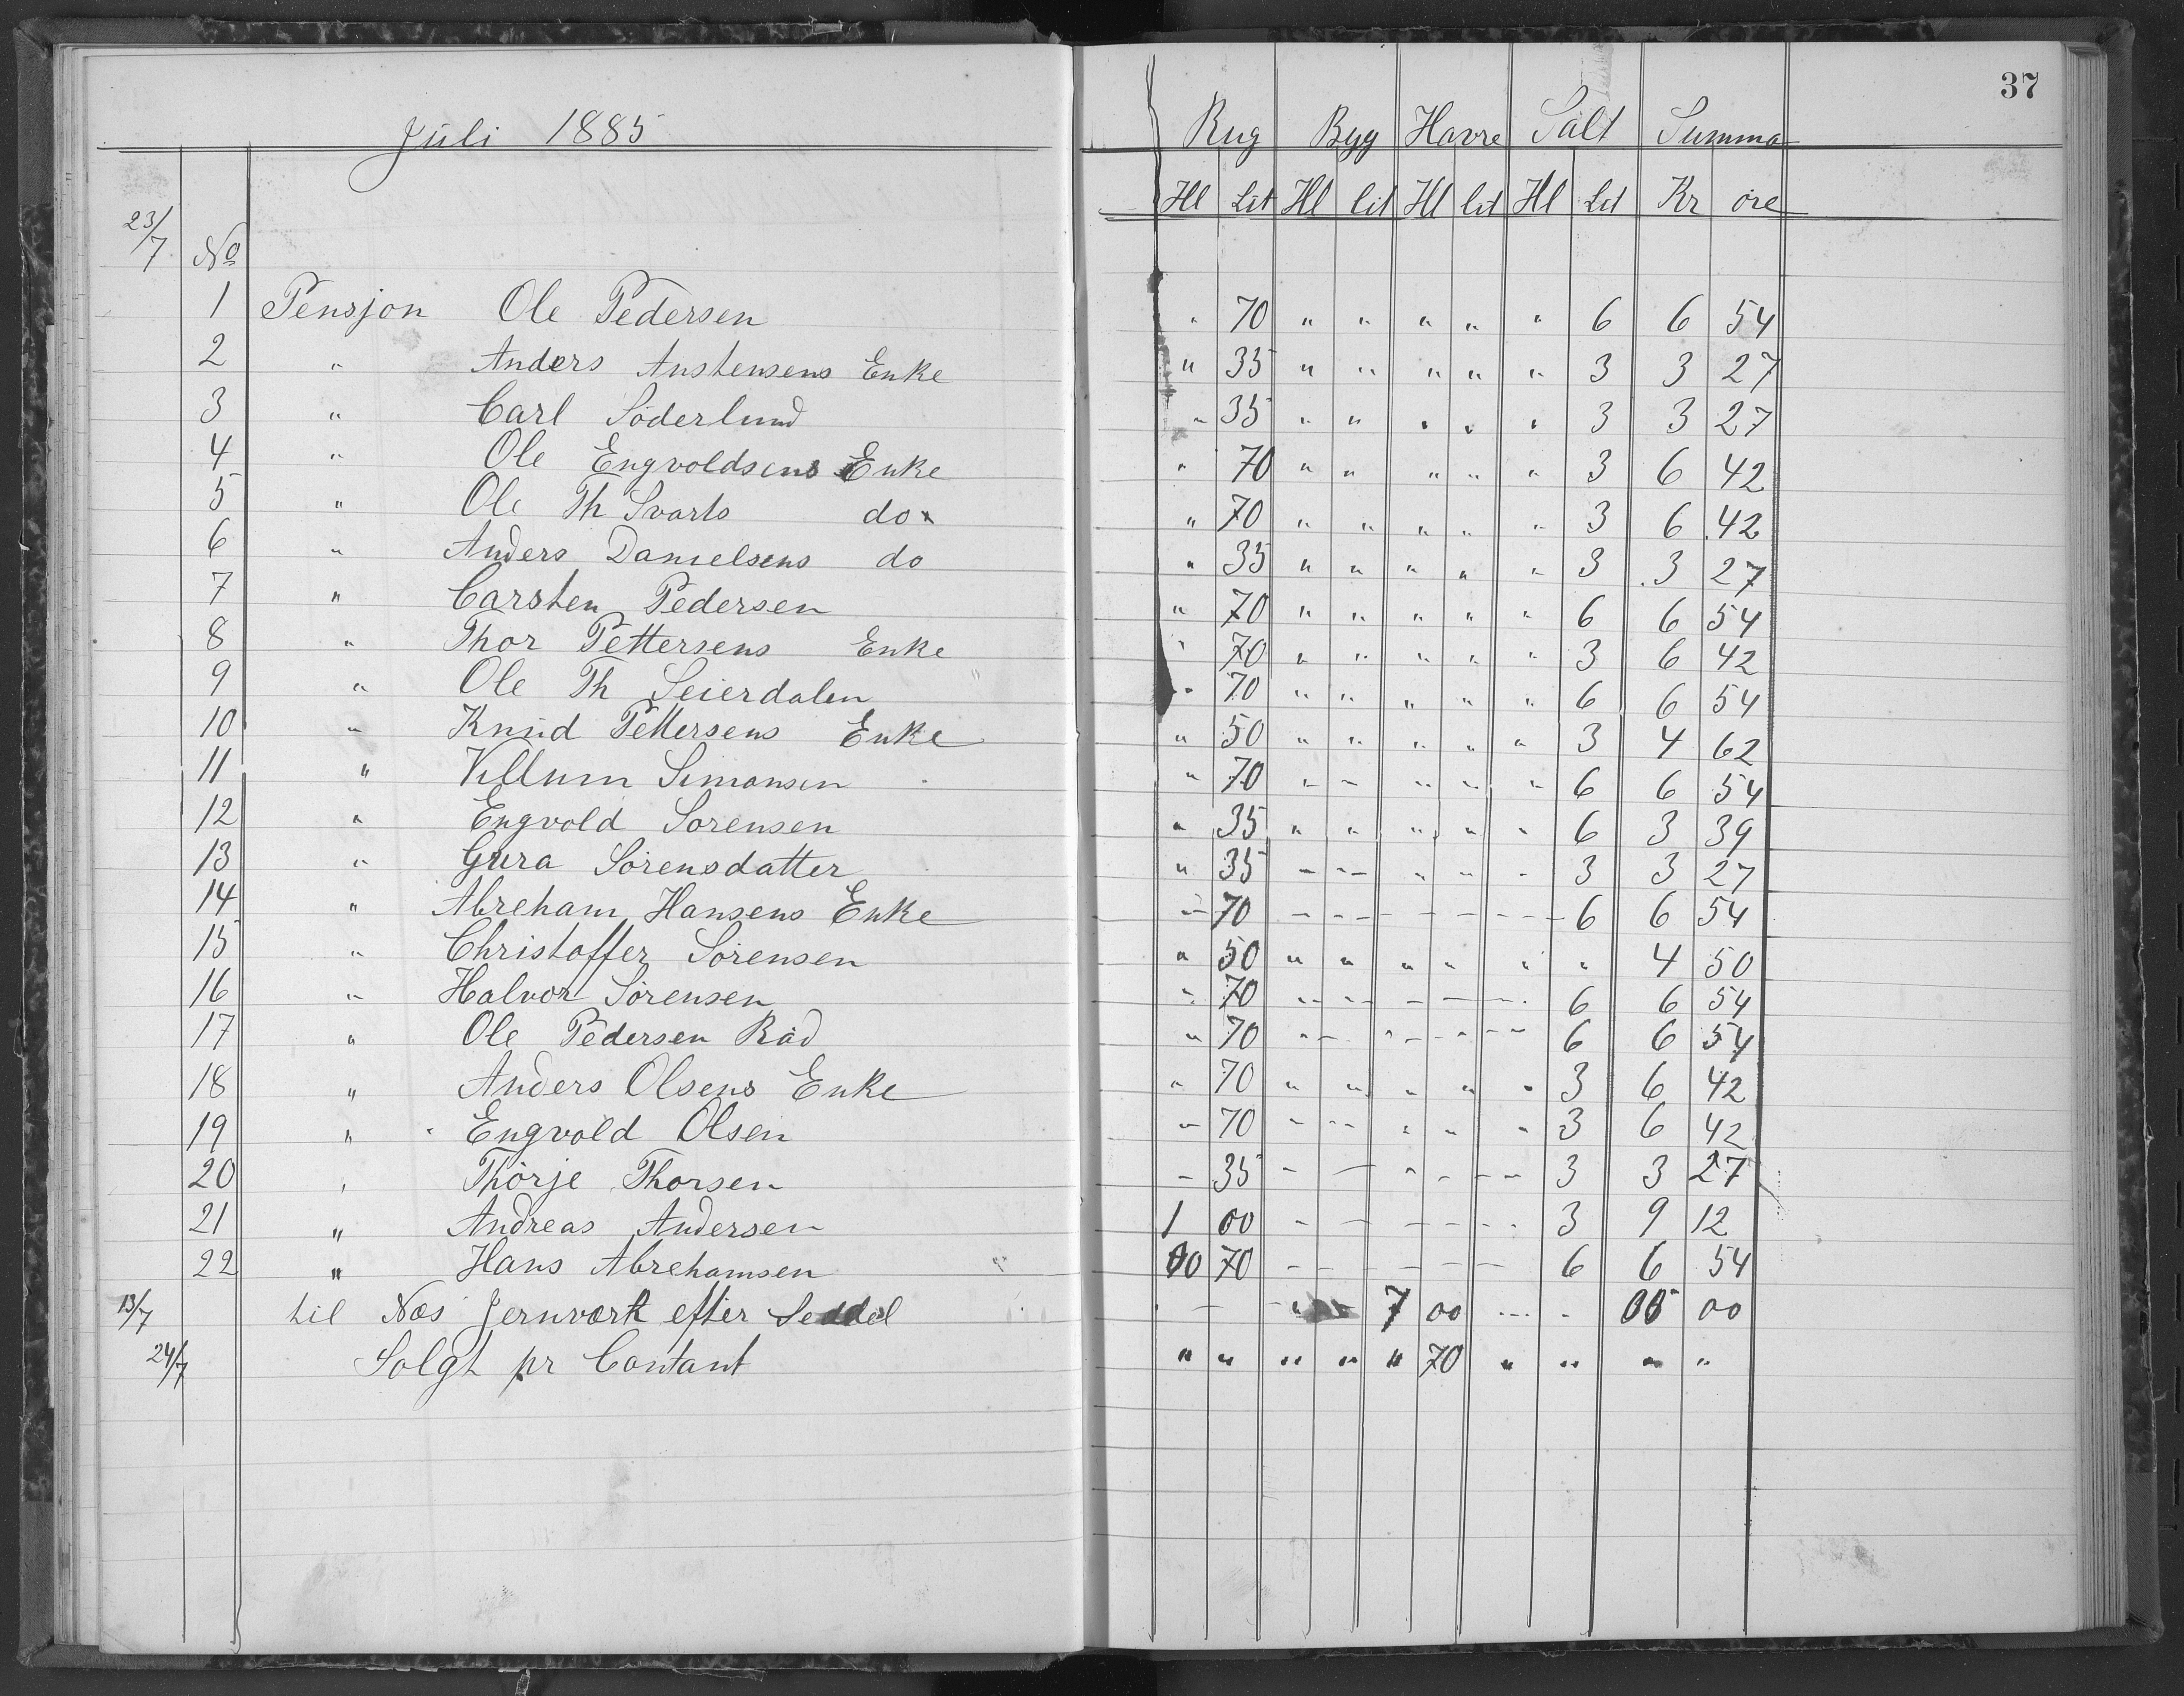 37
Juli 1885 Rug Byg Havre Salt Summa
Hl Lit Hl lit Hl lit Hl Lit Kr øre
23/7 No
1 Pensjon Ole Pedersen " 70 " " " " " 6 6 54
2 " Anders Austensens Enke " 35 " " " " " 3 3 27
3 " Carl Söderlund " 35 " " " " " 3 3 27
4 " Ole Engvoldsens Enke " 70 " " " " " 3 6 42
5 " Ole Th Svarts do " 70 " " " " " 3 6 42
6 " Anders Danielsens do " 35 " " " " " 3 3 27
7 " Carsten Pedersen " 70 " " " " " 6 6 54
8 " Thor Pettersens Enke " 70 " " " " " 3 6 42
9 " Ole Th Seierdalen " 70 " " " " " 6 6 54
10 " Knud Pettersens Enke " 50 " " " " " 3 4 62
11 " Villum Simonsen " 70 " - " " " 6 6 54
12 " Engvold Sorensen " 35 " " " " " 6 3 39
13 " Gura Sörensdatter " 35 - - " " - 3 3 27
14 " Abreham Hansens Enke - 70 - - - - - 6 6 54
15 " Christoffer Sörensen " 50 " " " " " " 4 50
16 " Halvor Sörensen " 70 - - - - - 6 6 54
17 " Ole Pedersen Råd " 70 - - - - - 6 6 54
18 " Anders Olsens Enke " 70 " " " " " 3 6 42
19 " Engvold Olsen - 70 - - " " " 3 6 42
20 " Thörje Thorsen - 35 - - - - - 3 3 27
21 " Andreas Andersen 1 00 - - - - - 3 9 12
22 " Hans Abrehamsen 00 70 - - - - - 6 6 54
13/7 til Næs Jernværk efter Seddel - - - - 7 00 - - 00
24/7 Solgt pr Contant " " " " " 70 " " " "